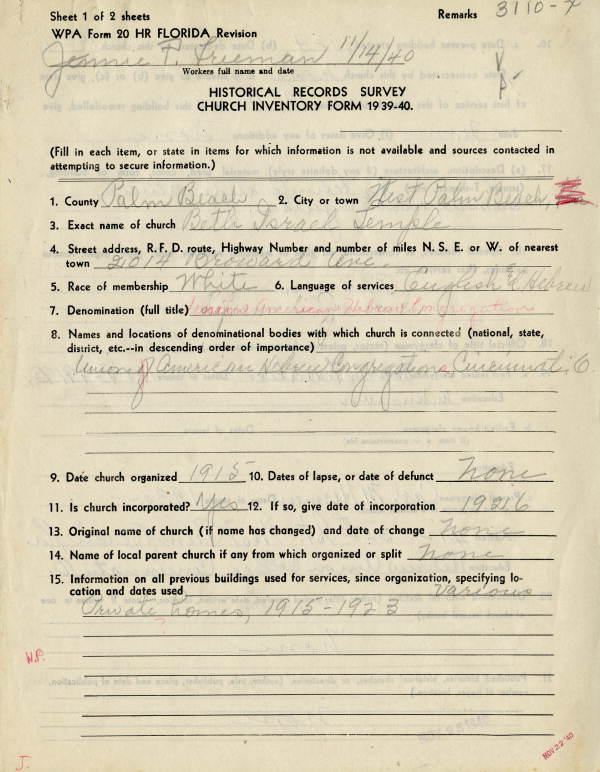 Sheet 1 of 2 sheets
Remarks 3110-7
WPA Form 20 HR FLORIDA Revision
Jennie F. Freeman 11/14/40
Workers full name and date
HISTORICAL RECORDS SURVEY
CHURCH INVENTORY FORM 1939-40.
(Fill in each item, or state in items for which information is not available and sources contacted in
attempting to secure information.)
1. County Palm Beach 2. City or town West Palm Beach,
3. Exact name of church Beth Israel Temple
4. Street address, R. F. D. route, Highway Number and number of miles N. S. E. or W. of nearest
town 2014 Broward Ave.
5. Race of membership White 6. Language of services English & Hebrew
7. Denomination (full title) American Hebrew Congregations
8. Names and locations of denominational bodies with which church is connected (national, state,
district, etc.--in descending order of importance)
Union of American Hebrew Congregations, Cincinnati, O.
9. Date church organized 1915 10. Dates of lapse, or date of defunct none
11. Is church incorporated? Yes 12. If so, give date of incorporation 1926
13. Original name of church (if name has changed) and date of change none
14. Name of local parent church if any from which organized or split none
15. Information on all previous buildings used for services, since organization, specifying lo-
cation and dates used Various
Private homes, 1915-1923
W.P.
J.
NOV 22 '40